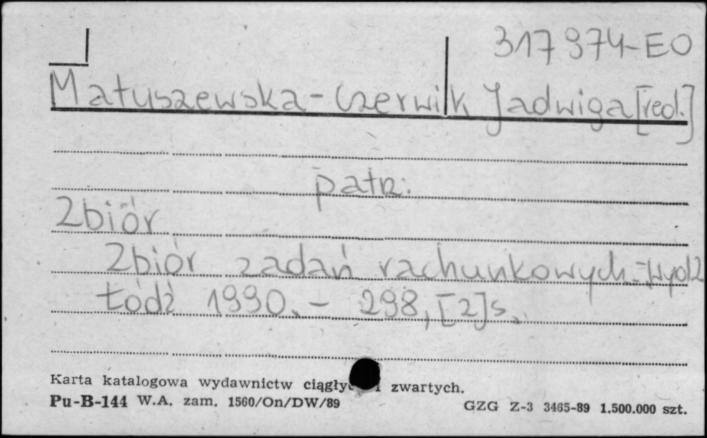 317974-EO
Matuszewska-Czerwik Jadwiga [red.]
patrz:
Zbiór
Zbiór zadań rachunkowych.-Wyd 2
Łódź 1990. - 298, [2]s.
Karta katalogowa wydawnictw i zwartych.
Pu-B-144 W.A. zam. 1560/On/DW/89
GZG Z-3 3465-89 1.500.000 szt.